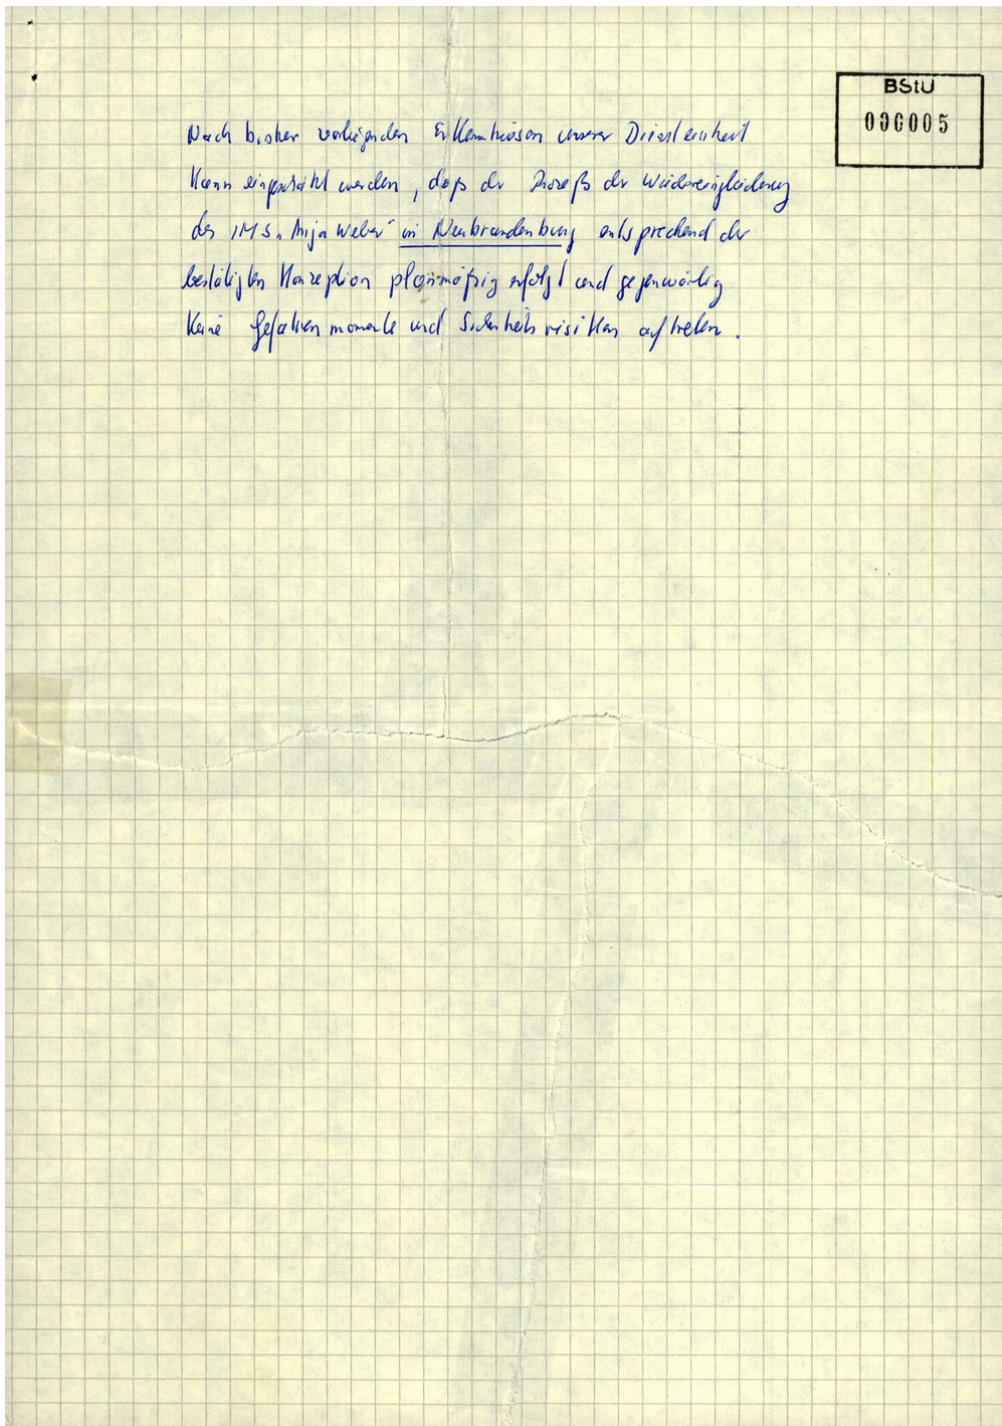 BStU
000005
Nach bisher vorliegenden Erkenntnissen unserer Diensteinheit
kann eingeschätzt werden, daß der Prozeß der Wiedereingliederung
des IMS „Anja Weber“ in Neubrandenburg entsprechend der
bestätigten Konzeption planmäßig erfolgt und gegenwärtig
keine Gefahrenmomente und Sicherheitsrisiken auftreten.